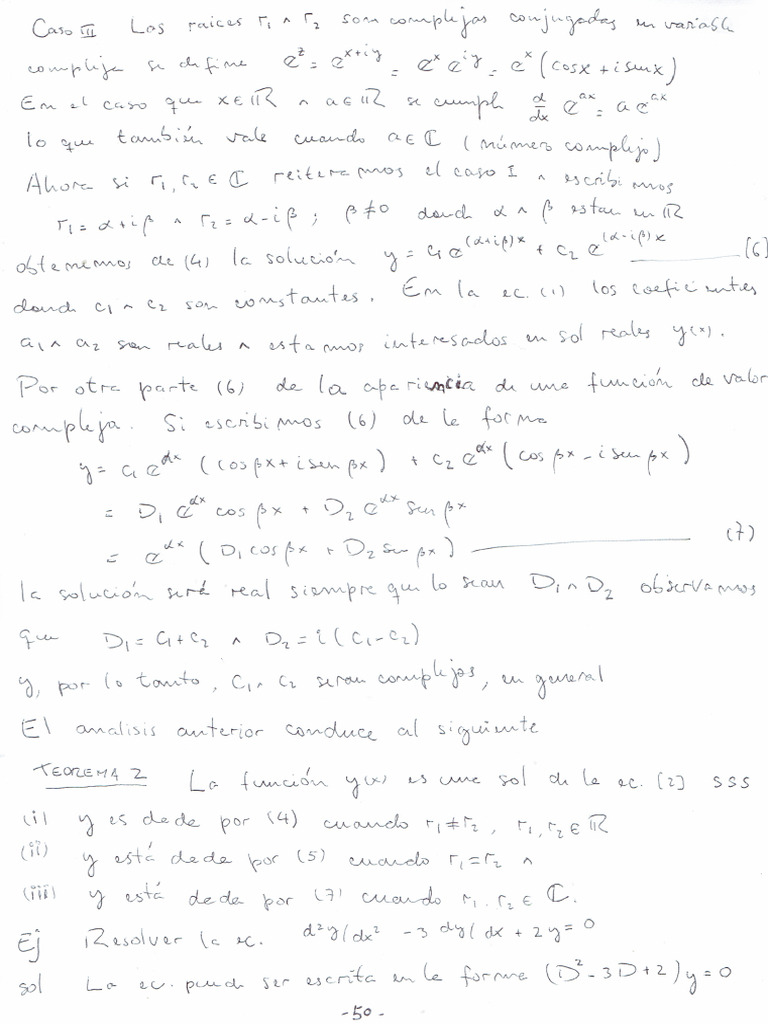 Caso III Las raices r₁ ∧ r₂ son complejas conjugadas en variable
compleja se define e^z = e^{x+iy} = e^x e^{iy} = e^x (cosx + i senx)
En el caso que x∈ℝ ∧ a∈ℝ se cumple d/dx e^{ax} = a e^{ax}
lo que también vale cuando a∈ℂ (número complejo)
Ahora si r₁, r₂ ∈ ℂ reiteramos el caso I ∧ escribimos
r₁ = α+iβ ∧ r₂ = α-iβ ; β≠0 donde α ∧ β estan en ℝ
obtenemos de (4) la solución y = c₁e^{(α+iβ)x} + c₂ e^{(α-iβ)x} ——— [6]
donde c₁ ∧ c₂ son constantes. En la ec. (1) los coeficientes
a₁ ∧ a₂ son reales ∧ estamos interesados en sol reales y(x).
Por otra parte (6) de la apariencia de una función de valor
compleja. Si escribimos (6) de le forma
y = c₁e^{αx} (cos βx + i sen βx) + c₂ e^{αx} (cos βx - i sen βx)
= D₁ e^{αx} cos βx + D₂ e^{αx} sen βx
= e^{αx} (D₁ cos βx + D₂ sen βx) ——— (7)
la solución será real siempre que lo sean D₁ ∧ D₂ observamos
que D₁ = c₁+c₂ ∧ D₂ = i(c₁-c₂)
y, por lo tanto, c₁ ∧ c₂ seran complejos, en general
El analisis anterior conduce al siguiente
TEOREMA 2 La función y(x) es une sol de le ec. (2) sss
(i) y es dede por (4) cuando r₁≠r₂, r₁, r₂ ∈ ℝ
(ii) y está dede por (5) cuando r₁=r₂ ∧
(iii) y está dede por (7) cuando r₁, r₂ ∈ ℂ.
Ej Resolver la ec. d²y/dx² - 3 dy/dx + 2y = 0
sol La ec. puede ser escrita en le forme (D² - 3D + 2) y = 0
- 50 -